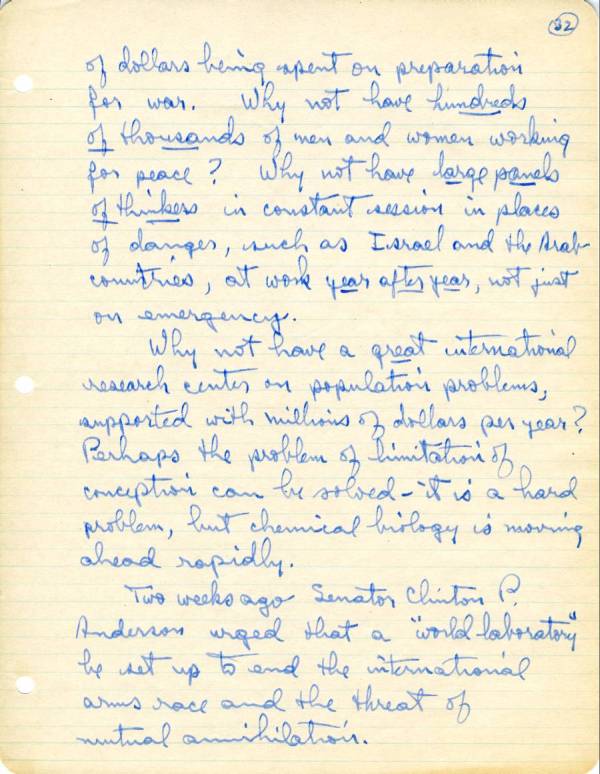 32
of dollars being spent on preparation
for war. Why not have hundreds
of thousands of men and women working
for peace? Why not have large panels
of thinkers in constant session in places
of danger, such as Israel and the Arab
countries, at work year after year, not just
on emergency.
Why not have a great international
research center on population problems,
supported with millions of dollars per year?
Perhaps the problem of limitation of
conception can be solved - it is a hard
problem, but chemical biology is moving
ahead rapidly.
Two weeks ago Senator Clinton P.
Anderson urged that a "world laboratory"
be set up to end the international
arms race and the threat of
mutual annihilation.